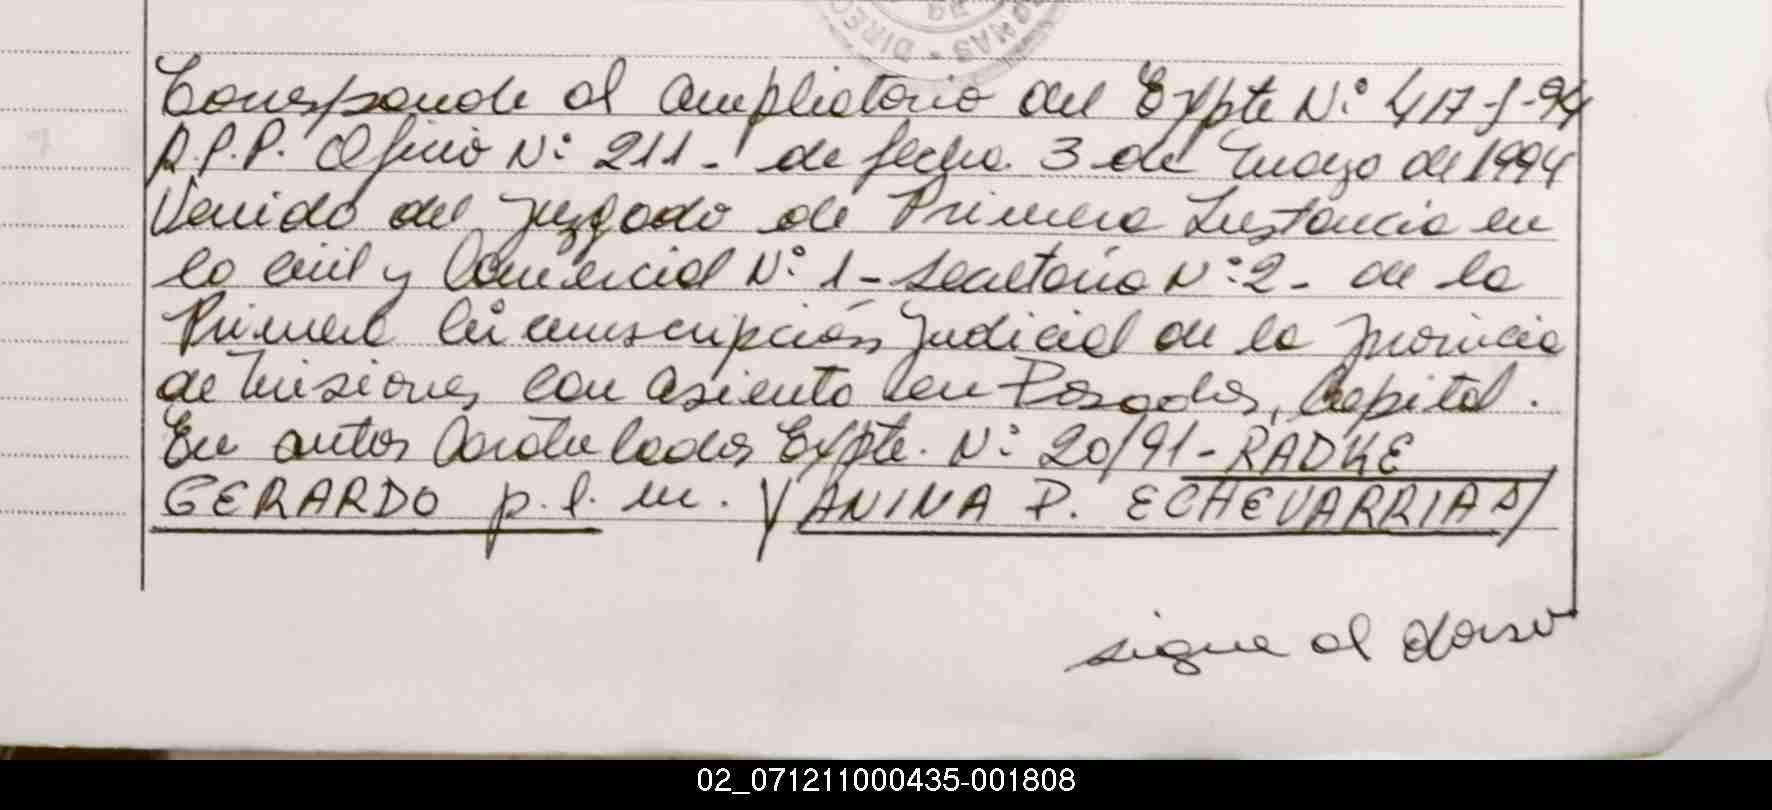 DIREC
DE
MAS
Corresponde al ampliatorio del Expte N° 417-J-94
R.P.P. Oficio N° 211- de fecha 3 de Mayo de 1994
Venido del Juzgado de Primera Instancia en
lo civil y Comercial N° 1- Secretaria N° 2- de la
Primera Circunscripción Judicial de la provincia
de Misiones con asiento en Posadas, Capital.
En autos Caratulados Expte. N° 20/91- RADKE
GERARDO p.s. m. YANINA P. ECHEVARRIA S/
sigue al dorso
02_071211000435-001808